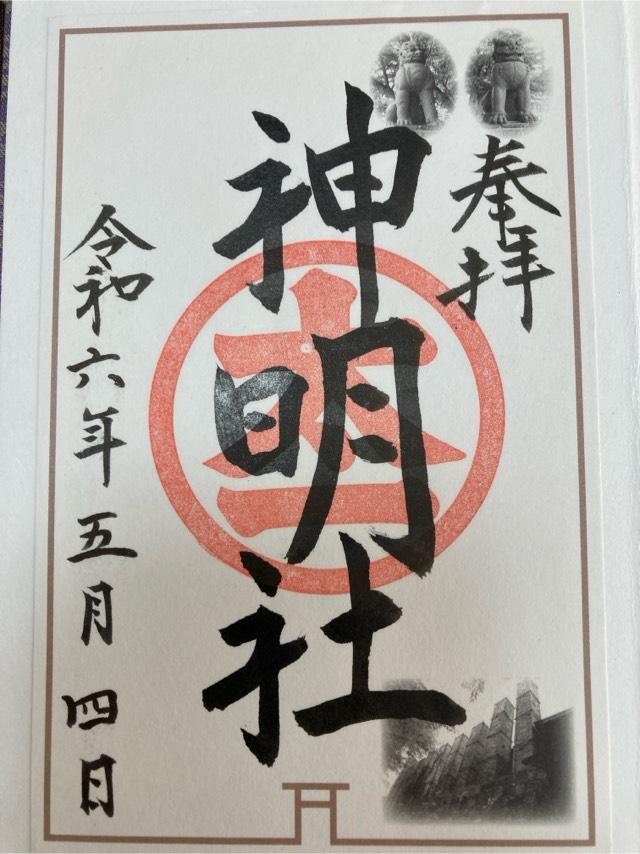 奉拝
神明社
令和六年五月四日